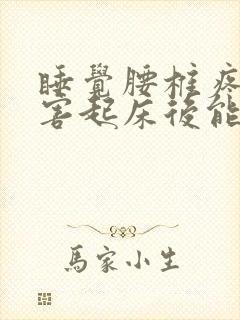 睡覺腰椎疼
害起床後能
馬家小生